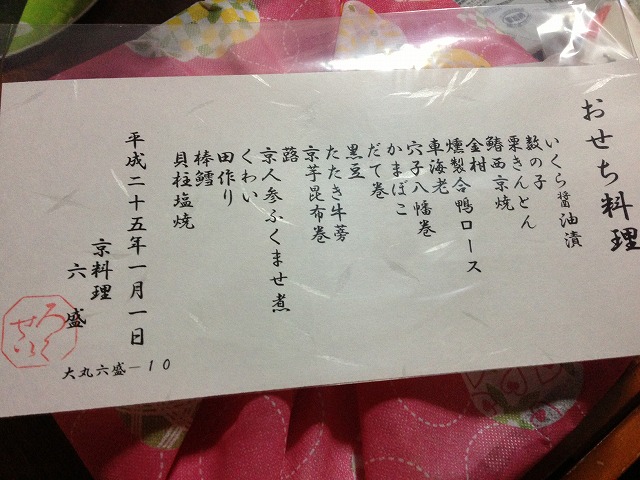 おせち料理
いくら醤油漬
数の子
栗きんとん
鰆西京焼
金柑
燻製合鴨ロース
車海老
穴子八幡巻
かまぼこ
だて巻
黒豆
たたき牛蒡
京芋昆布巻
蕗
京人参ふくませ煮
くわい
田作り
棒鱈
貝柱塩焼
平成二十五年一月一日
京料理
六盛
ろくせい
大丸六盛－10